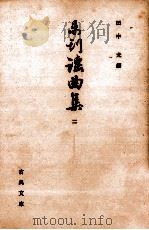 田中允編
未刊謡曲集 二
古典文庫